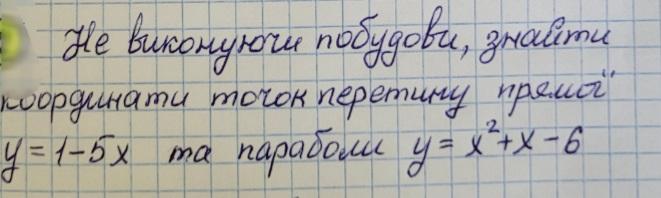 Не виконуючи побудови, знайти
координати точок перетину прямої
y = 1-5x та параболи y = x²+x-6